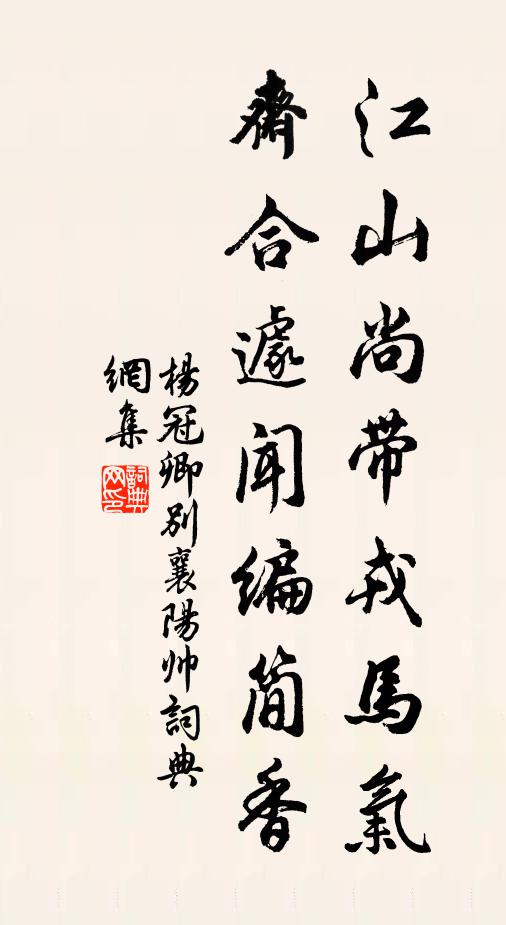 江山尚带戎馬氣
齋合遽闻编简香
楊冠卿别襄陽帅詞典
網集
詞典
网印